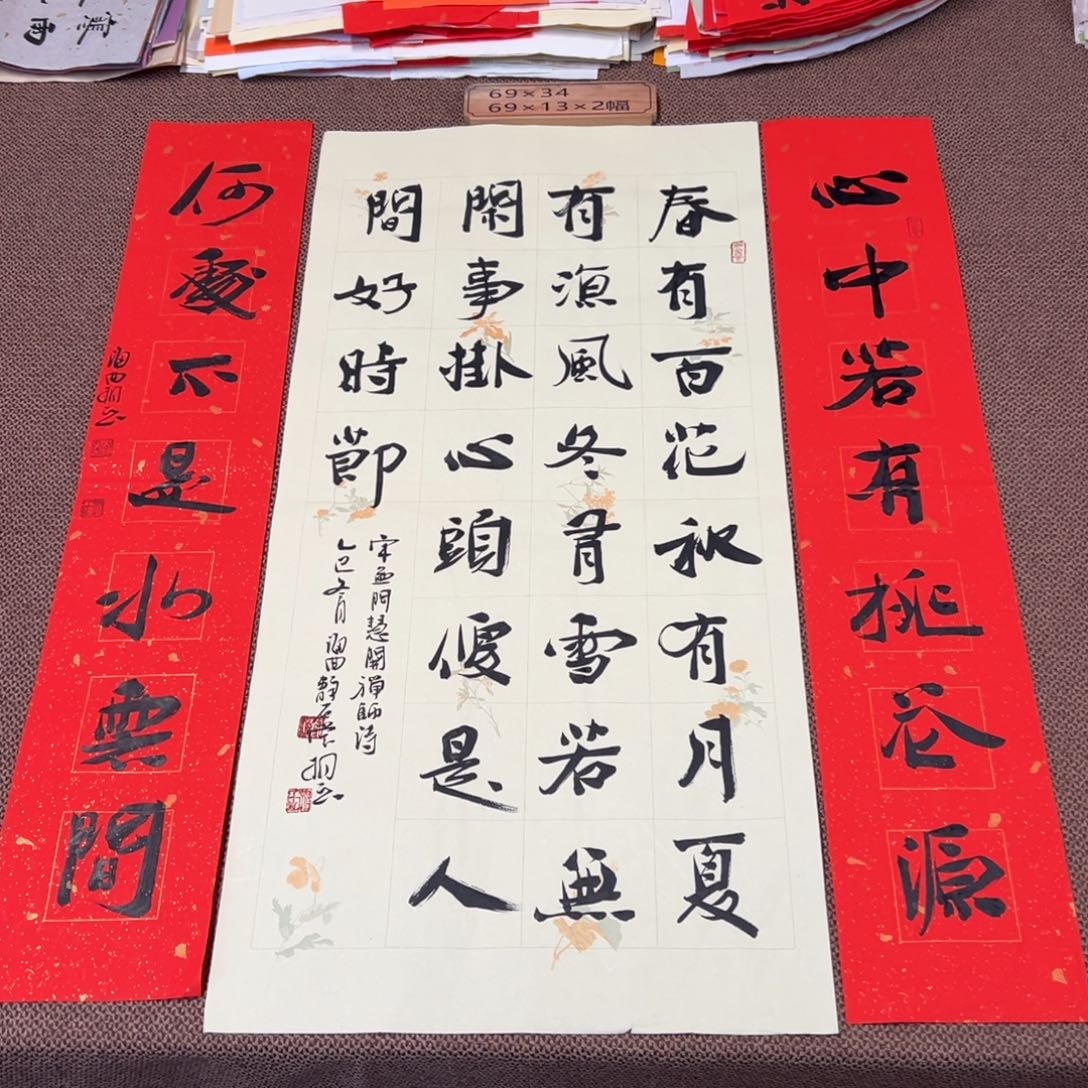 69×34
69×13×2幅
心中若有桃花源
春有百花秋有月夏
有涼風冬有雪若無
閑事掛心頭便是人
間好時節
宋無門慧開禪師詩
乙巳
何處不是水雲間
雨